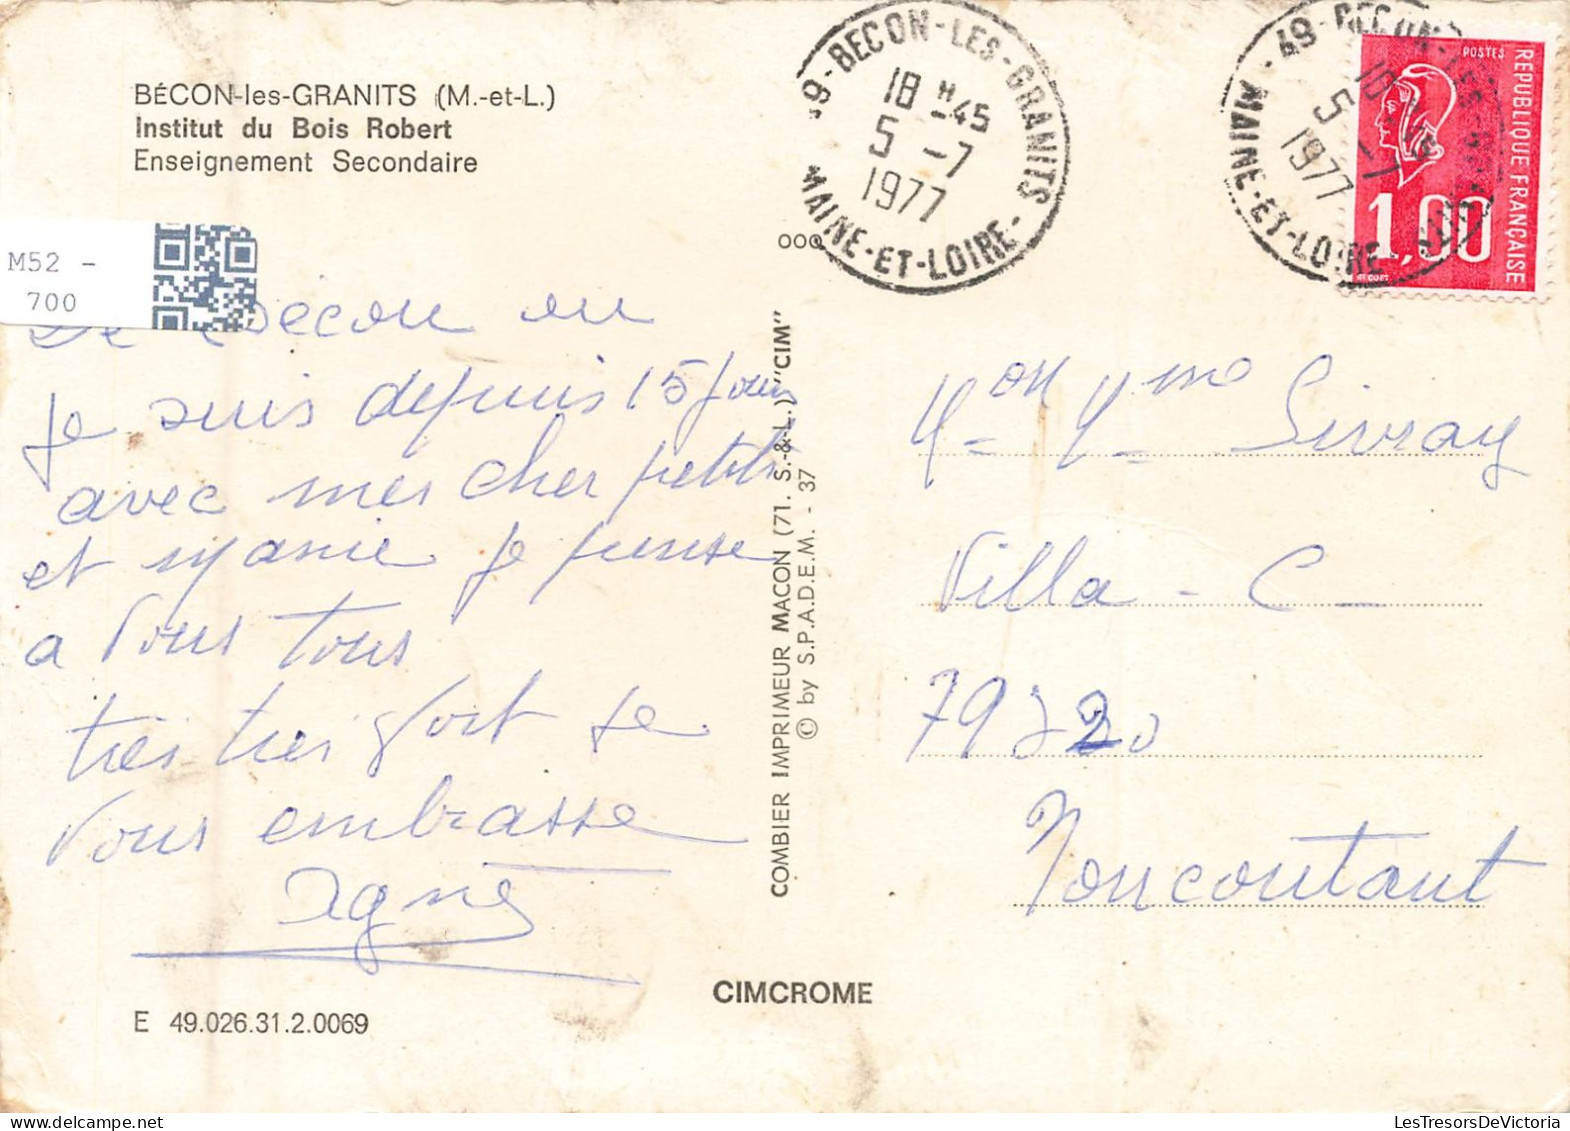 BÉCON-les-GRANITS (M.-et-L.)
Institut du Bois Robert
Enseignement Secondaire
M52 -
700
De Becon ou
Je suis depuis 15 jours
avec mes cher petits
et Marie je pense
a Vous tous
très très fort je
Vous embrasse
Agnès
E 49.026.31.2.0069
CIMCROME
COMBIER IMPRIMEUR MACON (71. S.-&-L.) "CIM"
© by S.P.A.D.E.M. - 37
49-BECON-LES-GRANITS
18 H 45
5 -7
1977
MAINE-ET-LOIRE
49-BECON-LES-GRANITS
18 H 45
5 -7
1977
MAINE-ET-LOIRE
POSTES
REPUBLIQUE FRANÇAISE
1,00
Mon Mme Sivray
Villa - C -
79320
Moncoutant
LesTresorsDeVictoria.com